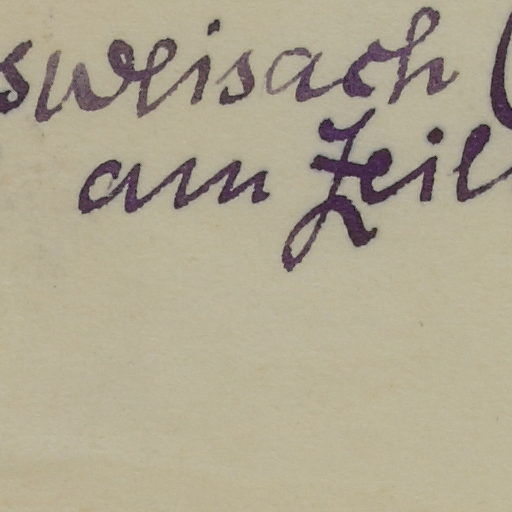 sweisach (
am Zeil